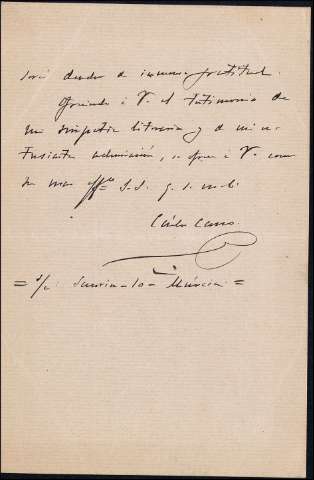 será deudor de inmensa gratitud.
Ofreciendo á V. el testimonio de
mi simpatía literaria y de mi en-
tusiasta admiración, se ofrece á V. como
su mas aff.mo S.S. q. s. m. b.
Carlos Cano.
= S/c: Saurin-10- Múrcia =